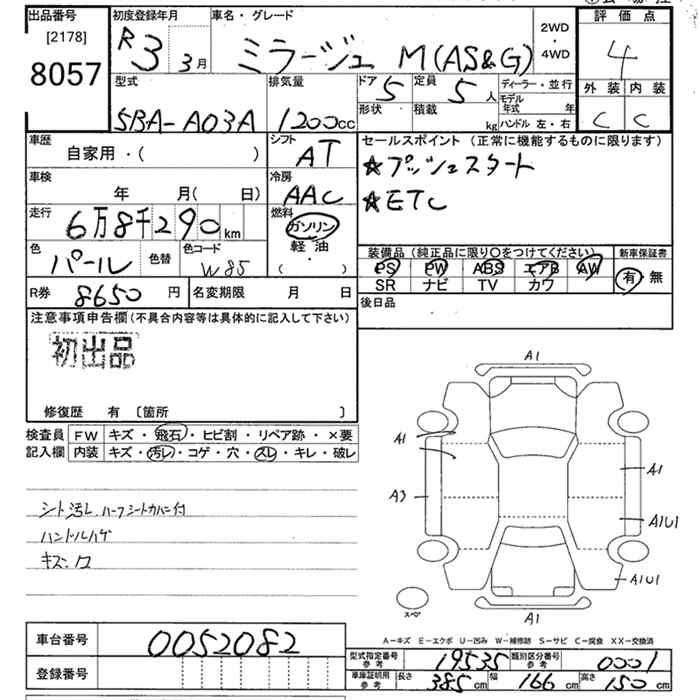 出品番号
[2178]
8057
初度登録年月
R3 3月
車名・グレード
ミラージュ M(AS&G)
2WD
・
4WD
評価点
4
外装 内装
C C
型式
5BA-A03A
排気量
1200cc
ドア 5
形状
定員 5人
積載 kg
ディーラー・並行
モデル年式 年
ハンドル 左・右
車歴
自家用・( )
シフト
AT
セールスポイント (正常に機能するものに限ります)
★プッシュスタート
★ETC
車検
年 月( 日)
冷房
AAC
走行
6万8千290km
燃料
ガソリン
軽油
( ・ )
色
パール
色替
色コード
W85
装備品 (純正品に限り〇をつけてください)
PS PW ABS エアB AW
SR ナビ TV カワ
新車保証書
有・無
R券 8650円
名変期限 月 日
後日品
注意事項申告欄(不具合内容等は具体的に記入して下さい)
初出品
修復歴 有 〔箇所 〕
検査員記入欄
FW キズ・飛石・ヒビ割・リペア跡・×要
内装 キズ・汚レ・コゲ・穴・スレ・キレ・破レ
シート汚レ ハーフシートカバー付
ハンドルハゲ
キズ・凹
A1
A1
A1
A3
A1U1
A1U1
スペア
A1
A−キズ E−エクボ U−凹み W−補修跡 S−サビ C−腐食 XX−交換済
車台番号
0052082
登録番号
型式指定番号 参考 19535
類別区分番号 参考 0001
車庫証明用 参考 長さ 385cm 幅 166cm 高さ 150cm